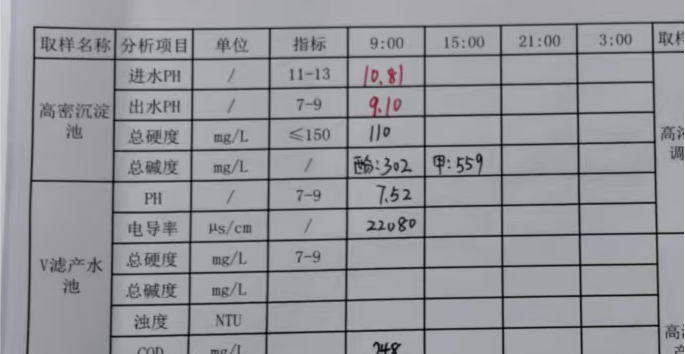 取样名称 分析项目 单位 指标 9:00 15:00 21:00 3:00 取样
高密沉淀池 进水PH / 11-13 10.81
出水PH / 7-9 9.10
总硬度 mg/L ≤150 110
总碱度 mg/L / 酚:302 甲:559
V滤产水池 PH / 7-9 7.52
电导率 μs/cm / 22080
总硬度 mg/L 7-9
总碱度 mg/L
浊度 NTU
COD mg/L 248
高浓
调
高